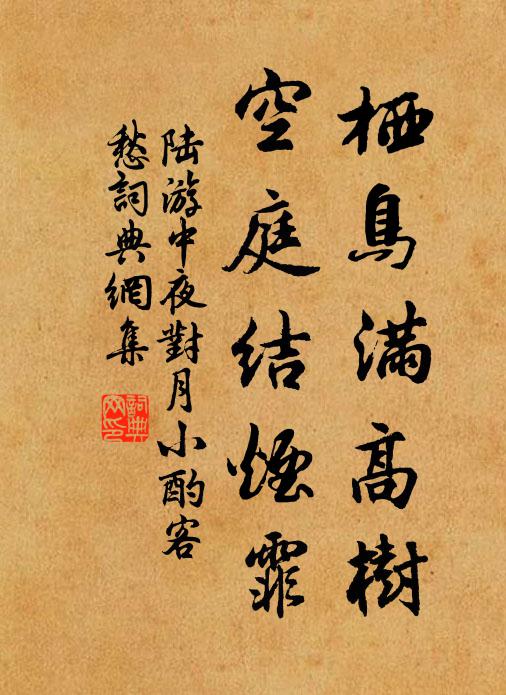 栖鳥滿高樹
空庭結煙霏
陆游中夜對月小酌客
愁詞典網集
詞典
网印